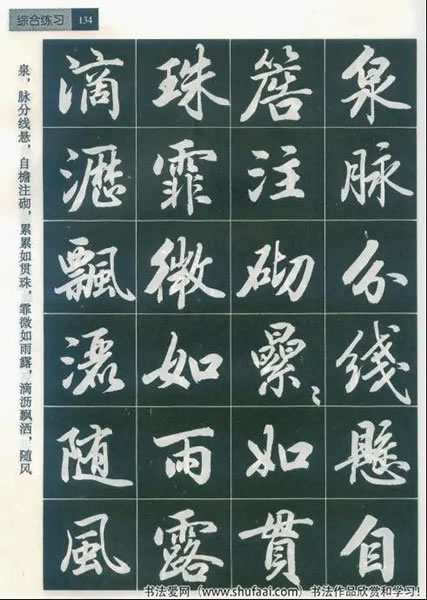 综合练习 134
泉脉分线懸自
簷注砌纍〻如貫
珠霏微如雨露
滴瀝飄灑随風
泉，脉分线悬，自檐注砌，累累如贯珠，霏微如雨露，滴沥飘洒，随风
书法爱网（www.shufaai.com）书法作品欣赏和学习！